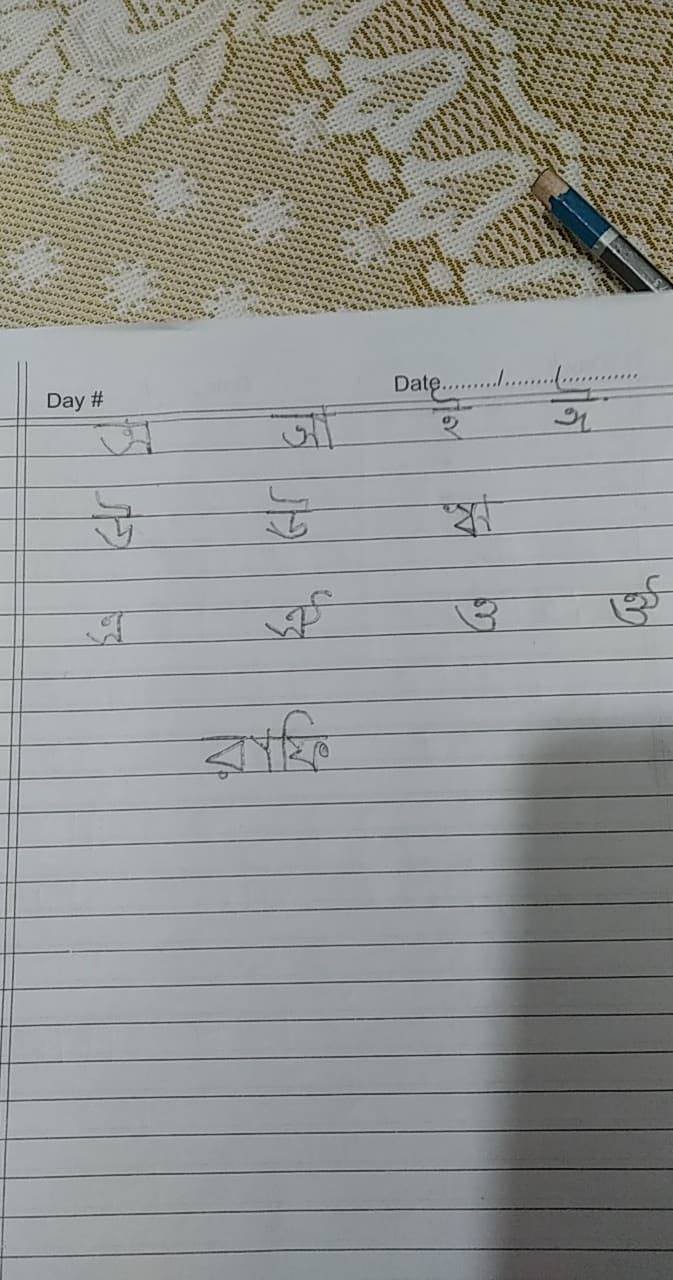 Day # Date........./........./............
অ আ ই ঈ
উ ঊ ঋ
এ ঐ ও ঔ
রাফি